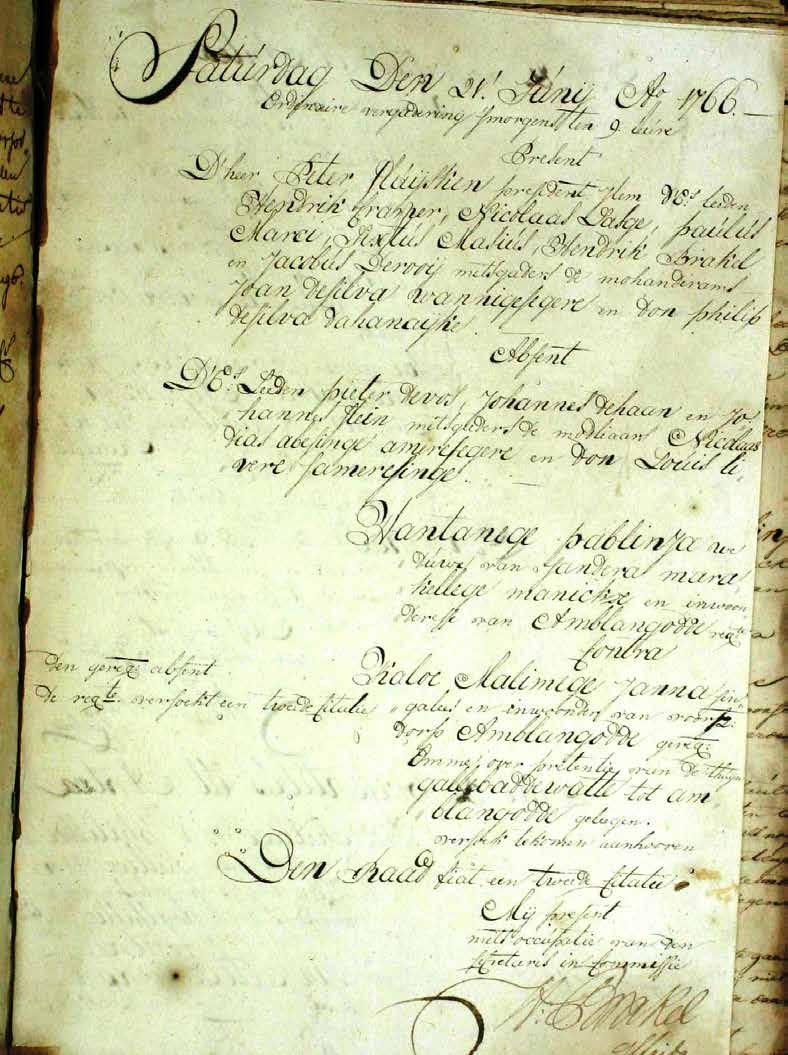 Saturdag Den 21' Junij Ao 1766.
Ordinaire vergadering smorgens ten 9 uure
Present
D'heer Peter Sluijsken president Item D'Es leden
Hendrik Cramer, Nicolaas Lasge, paulus
Marci, Sixtus Masius, Hendrik Brakel
en Jacobus Derooij mitsgaders de mohanderams
Joan desilva wannigesegere en Don philip
desilva dahanaijke.
Absent
D'Es. Leeden pieter devos, Johannes dehaan en Jo
hannes klein mitsgaders de modliaars Nicolaas
dias abesinge amresegere en Don Louis li
vere sameresinge.
Hantanege pablinja we
duwe van Sandera mara
kellege manickoe en inwoon
deresse van Amblangodde reqte
Contra
den gereqe absent
de reqte. versoekt een tweede Citatie
Kaloe Malimege Janna sin
galees en inwoonder van voorsz:
dorp Amblangodde gereq:
Omme over pretentie van de thuijn
gallebaddewatte tot am
blangodde gelegen.
versoek tekomen aanhooren
Den Raad fiat een tweede Citatie
Mij present
mits occupatie van den
Secretaris in Commissie
H. Brakel